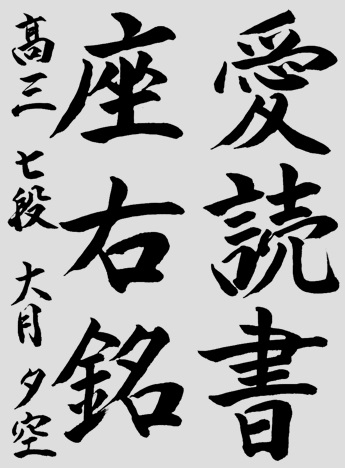 愛読書
座右銘
高三 七段 大月 夕空